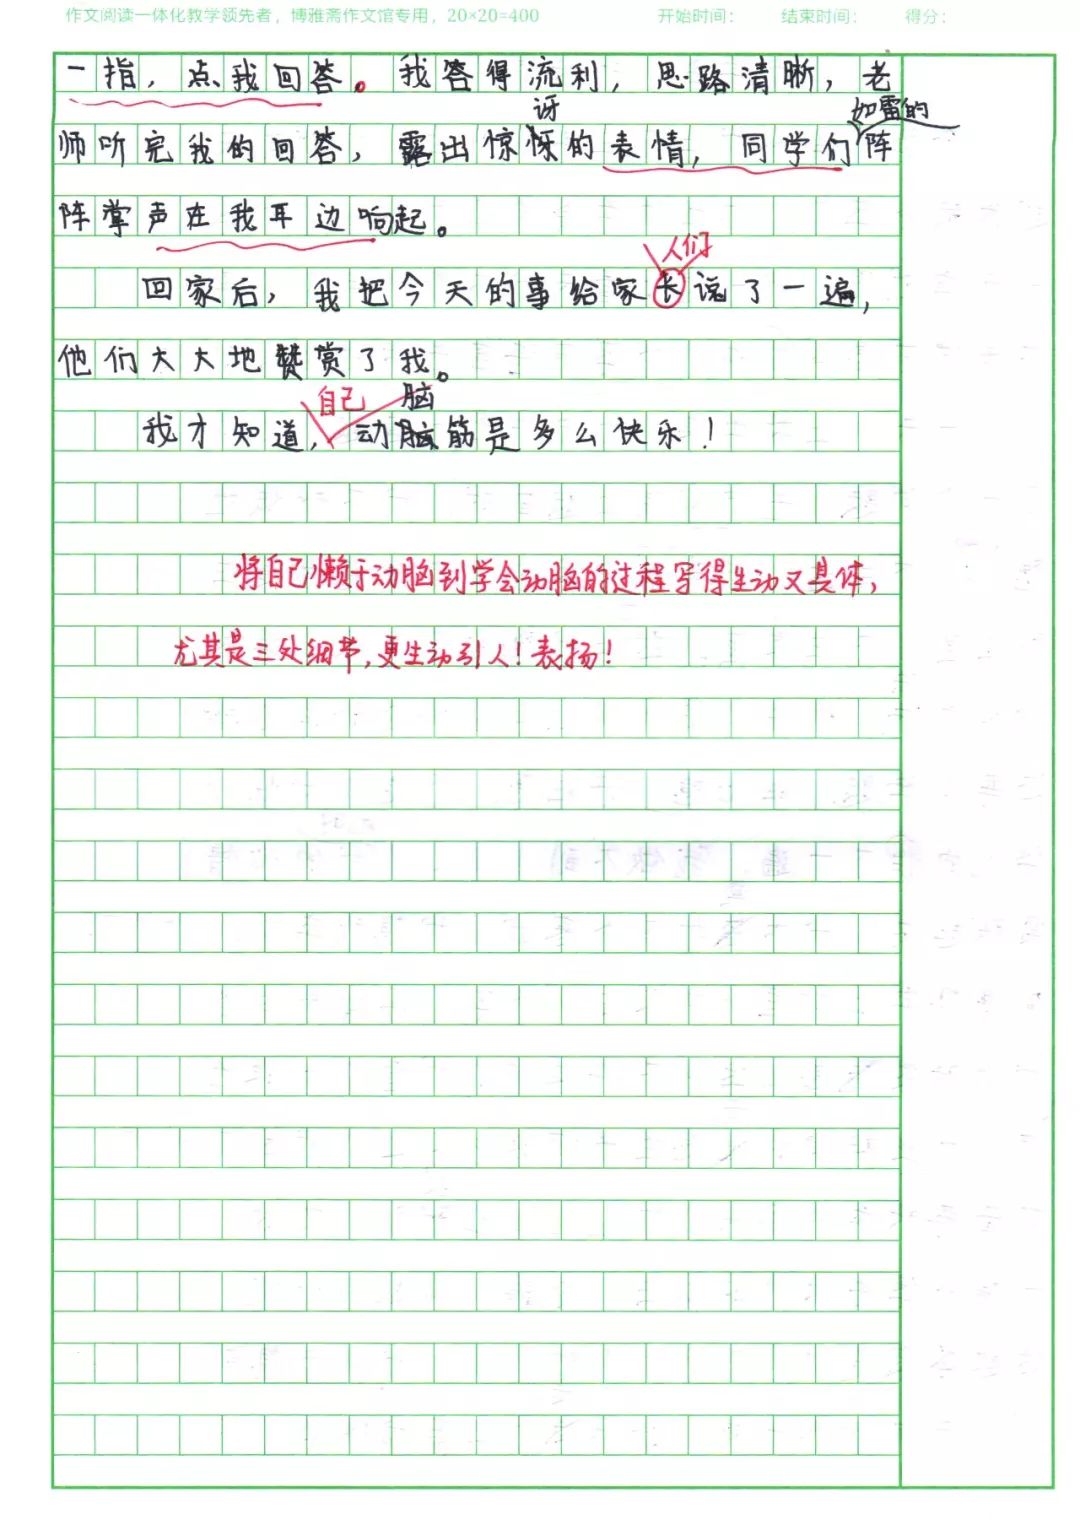 作文阅读一体化教学领先者，博雅斋作文馆专用，20×20=400 开始时间： 结束时间： 得分：
一指，点我回答。我答得流利，思路清晰，老
讶 如雷的
师听完我的回答，露出惊讶的表情，同学们阵
阵掌声在我耳边响起。
人们
回家后，我把今天的事给家长说了一遍，
他们大大地赞赏了我。
自己 脑
我才知道，动脑筋是多么快乐！
将自己懒于动脑到学会动脑的过程写得生动又具体，
尤其是三处细节，更生动引人！表扬！